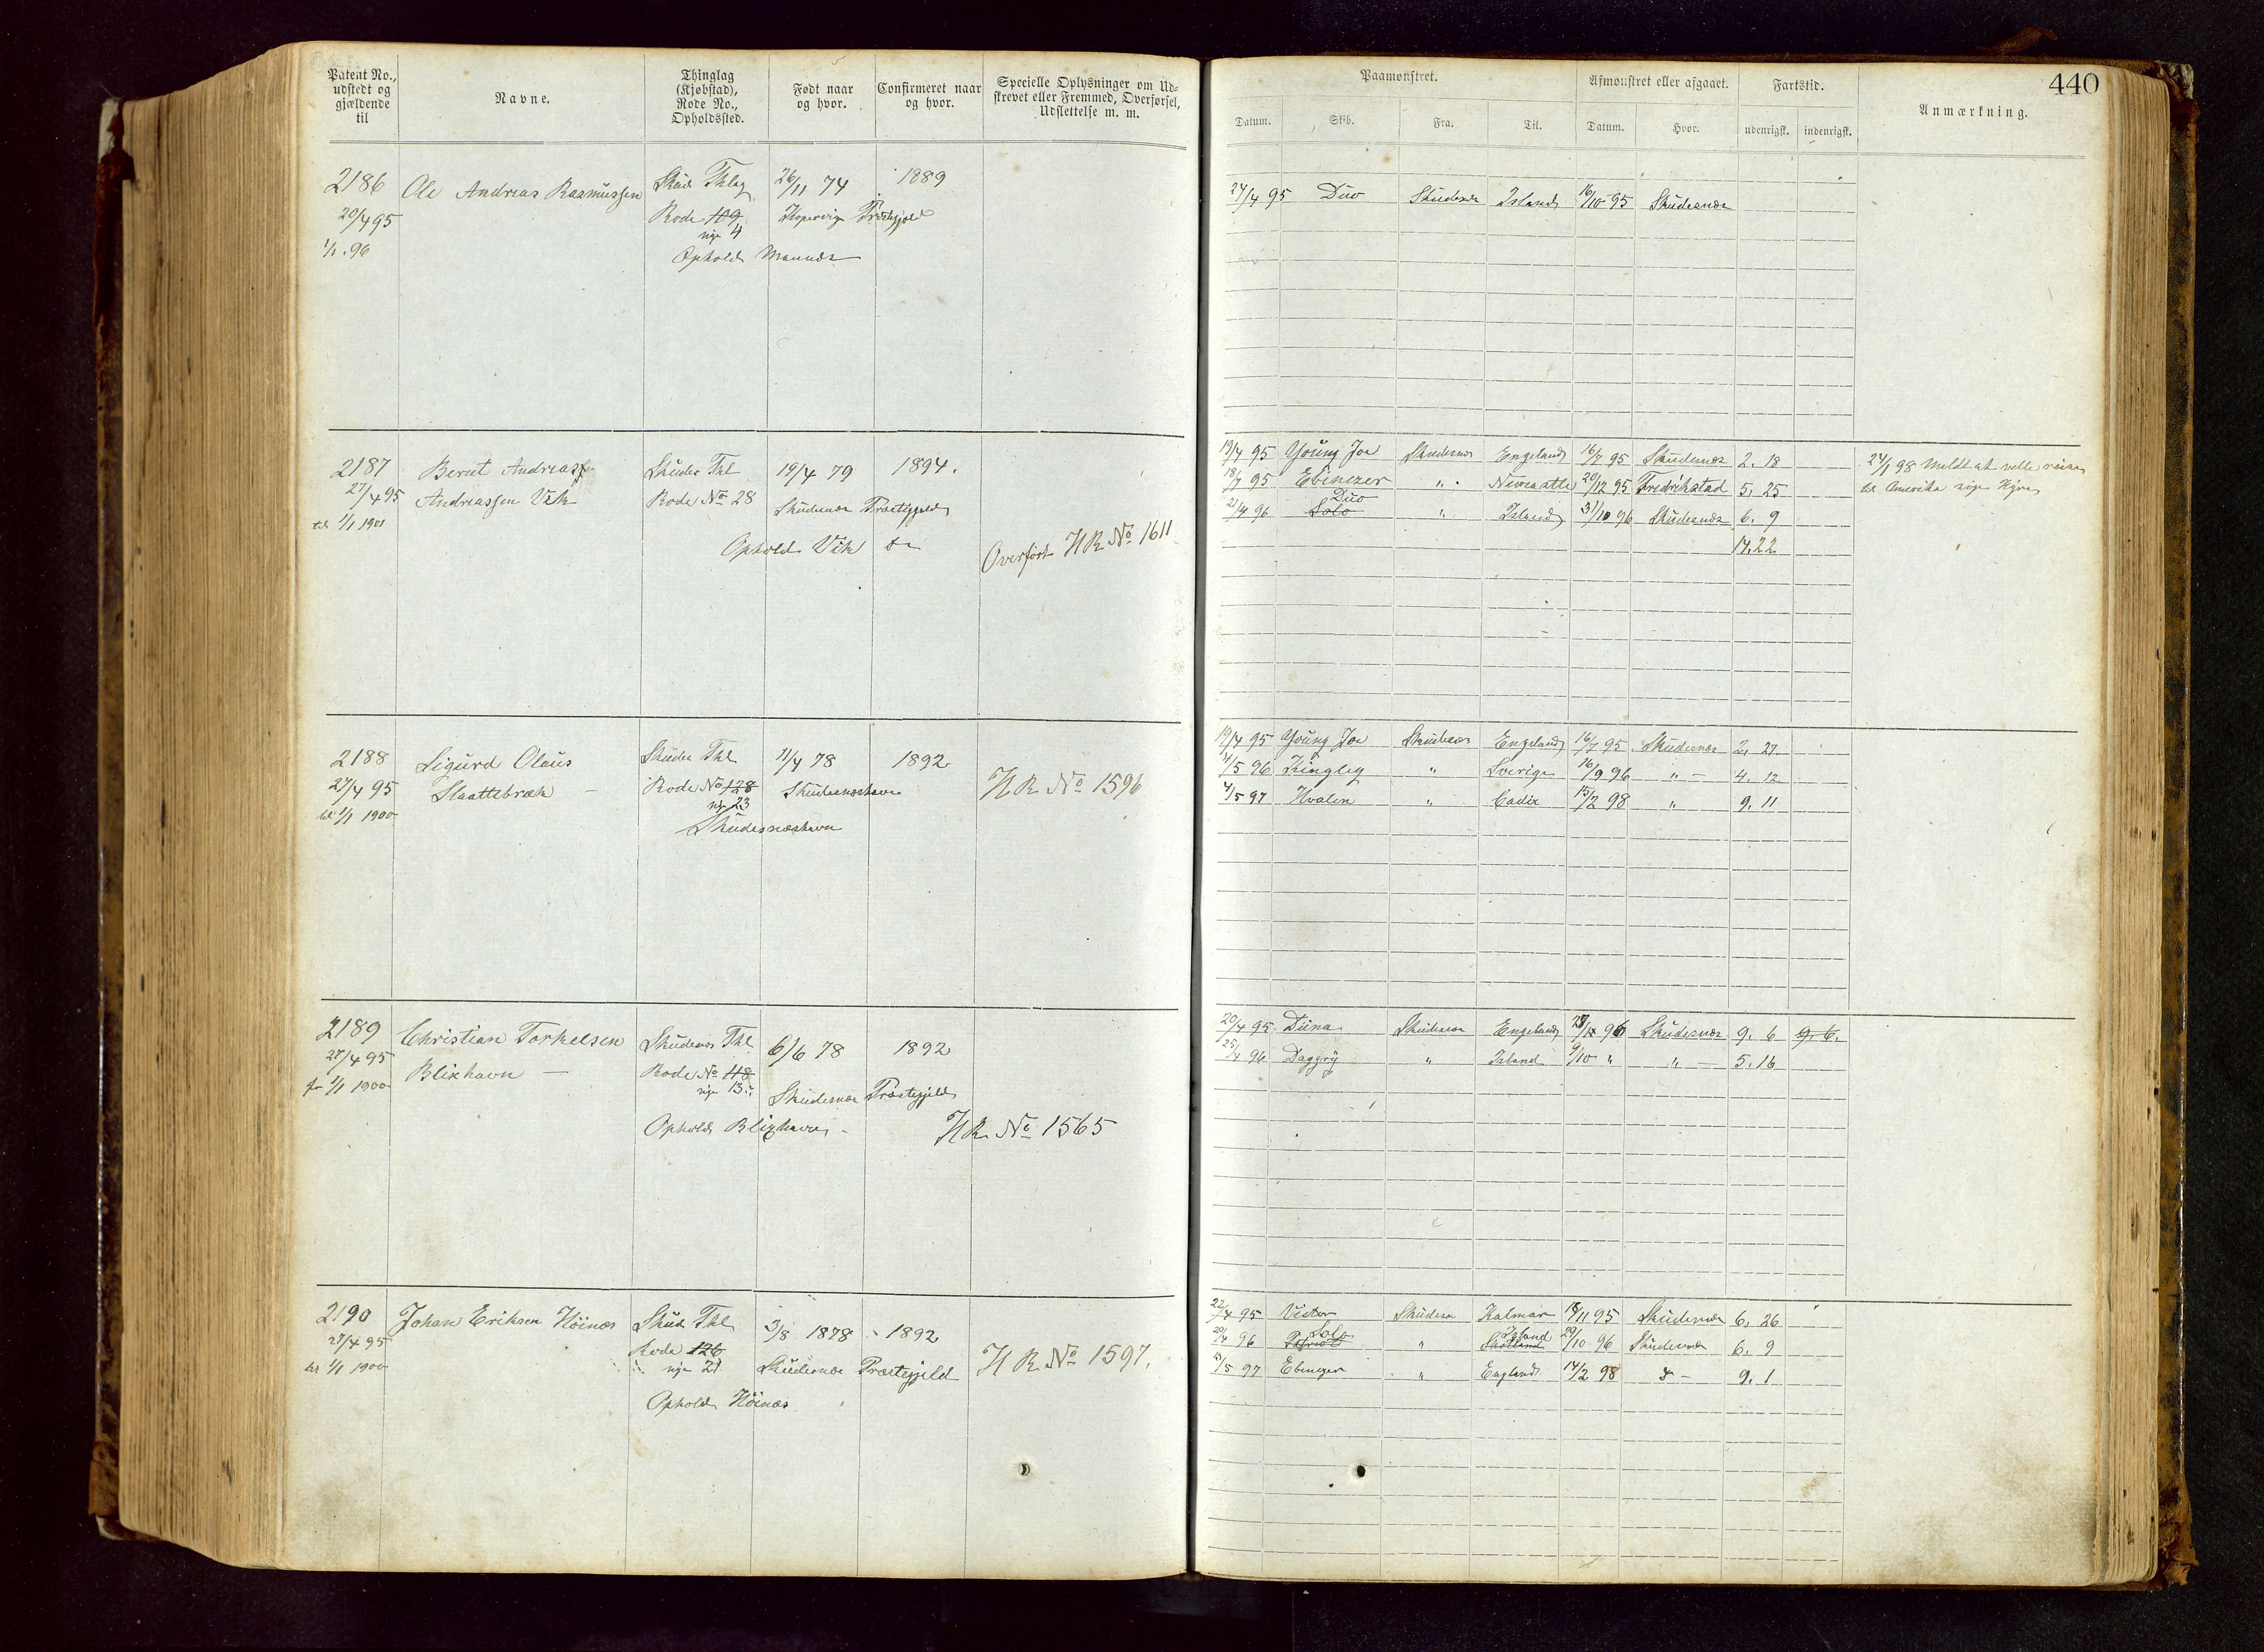 Patent No., udstedt og gjældende til
Navne.
Thinglag (Kjøbstad), Rode No., Opholdssted.
Født naar og hvor.
Confirmeret naar og hvor.
Specielle Oplysninger om Udskrevet eller Fremmed, Overførsel, Udslettelse m. m.
Paamønstret.
Afmønstret eller afgaaet.
Fartstid.
Anmærkning.
440
Datum. Skib. Fra. Til. Datum. Hvor. udenrigsk. indenrigsk.
2186 Ole Andreas Rasmussen Skud Thlag 26/11 74 1889
20/4 95 Rode 119 Kopervig Præstegjeld
nye 4
1/1. 96 Ophold Munnæs
24/4 95 Duo Skudesnæs Island 16/10 95 Skudesnæs
2187 Bernt Andreas Skudes Thl 19/4 79 1894.
27/4 95 Andreassen Vik Rode No 28 Skudesnæs Præstegjeld
til 1/1 1901
Ophold Vik Overført HR No 1611
19/4 95 Young Joe Skudesnæs England 16/7 95 Skudesnæs 2. 18
18/7 95 Ebenezer " Newcastle 20/12 95 Fredrikstad 5. 25
Duo
21/4 96 Solo " Island 31/10 96 Skudesnæs 6. 9
14. 22
24/1 98 Meldt at ville reise
til Amerika
2188 Sigurd Olaus Skudes Thl 11/4 78 1892
27/4 95 Slaattebræk – Rode No 128 Skudesneshavn HR No 1596
nye 23
til 1/1 1900 Skudesnæshavn
19/4 95 Young Joe Skudesnæs England 16/7 95 Skudesnæs 2. 27
4/5 96 Kingley " Sverige 16/9 96 " – 4. 12
4/5 97 Hvalen " Cadix 15/2 98 " 9. 11
2189 Christian Torkelsen Skudenes Thl 6/6 78 1892
27/4 95 Blixhavn – Rode No 118
nye 13
1/1 1900 Skudesnæs Præstegjeld
Ophold Blixhavn – HR No 1565
20/4 95 Duna Skudesnæs England 96 Skudesnæs 9. 6 9. 6.
25/4 96 Daggry " Island 9/10 " " – 5. 16
2190 Johan Eriksen Höinæs Skud Thl 3/8 1878 – 1892
27/4 95 Rode 126
til 1/1 1900 nye 21 Skudesnæs Præstegjeld HR No 1597.
Ophold Höinæs
22/4 95 Victor Skudesn Kalmar 18/11 95 Skudesnæs 6. 26
Solo Island
20/4 96 " Skotland 29/10 96 Skudesnæs 6. 9
13/5 97 Ebenezer " England 14/2 98 – 9. 1